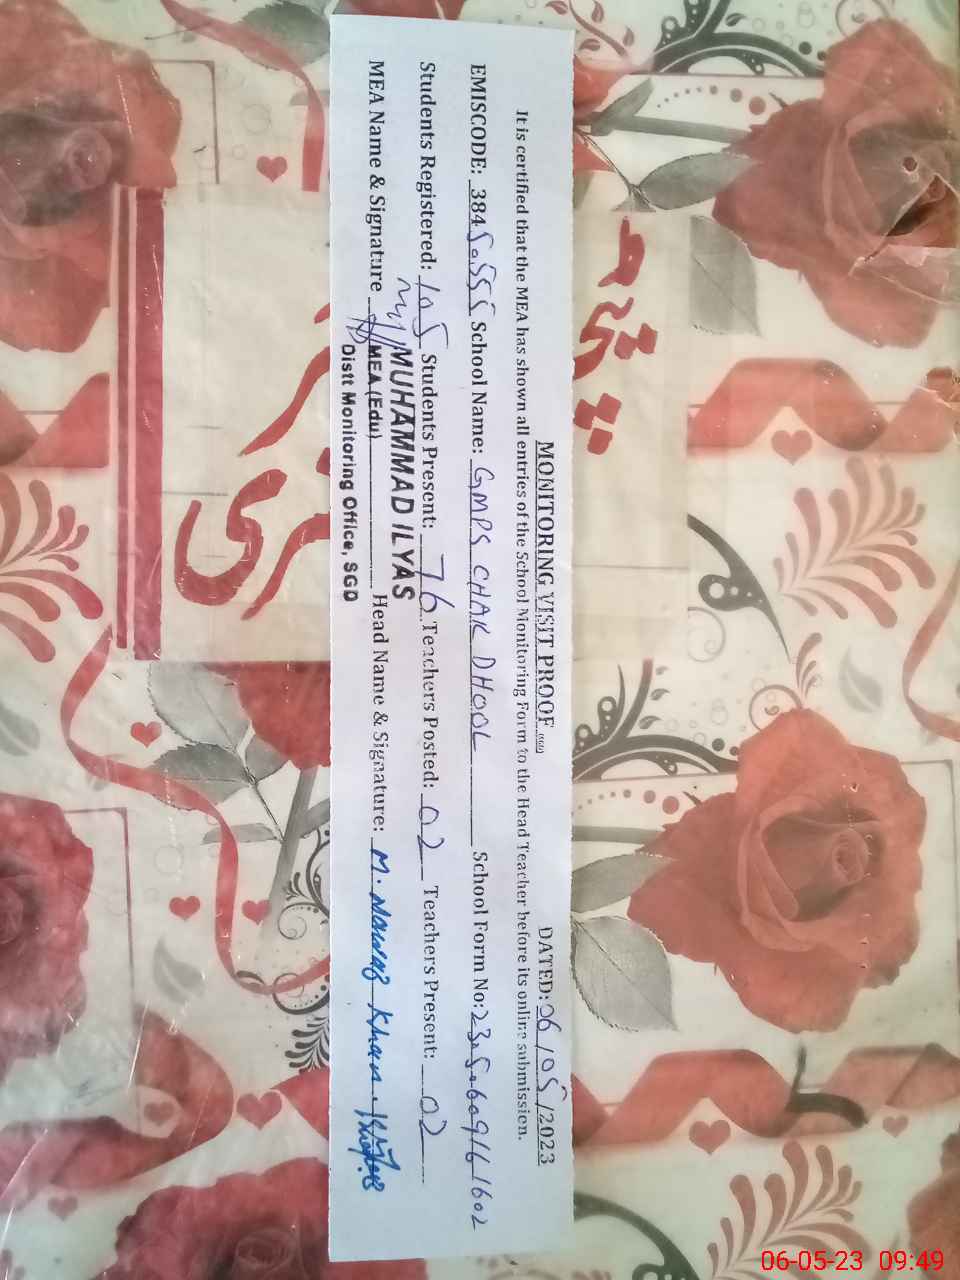 MONITORING VISIT PROOF DATED: 06/05/2023
It is certified that the MEA has shown all entries of the School Monitoring Form to the Head Teacher before its online submission.
EMISCODE: 38450555 School Name: GMPS CHAK DHOOL School Form No:
Students Registered: 105 Students Present: 76 Teachers Posted: 02 Teachers Present: 02
MEA Name & Signature Head Name & Signature: M. Nawab Khan.
MUHAMMAD ILYAS
MEA (Edu)
Distt Monitoring Office, SGD
06-05-23 09:49